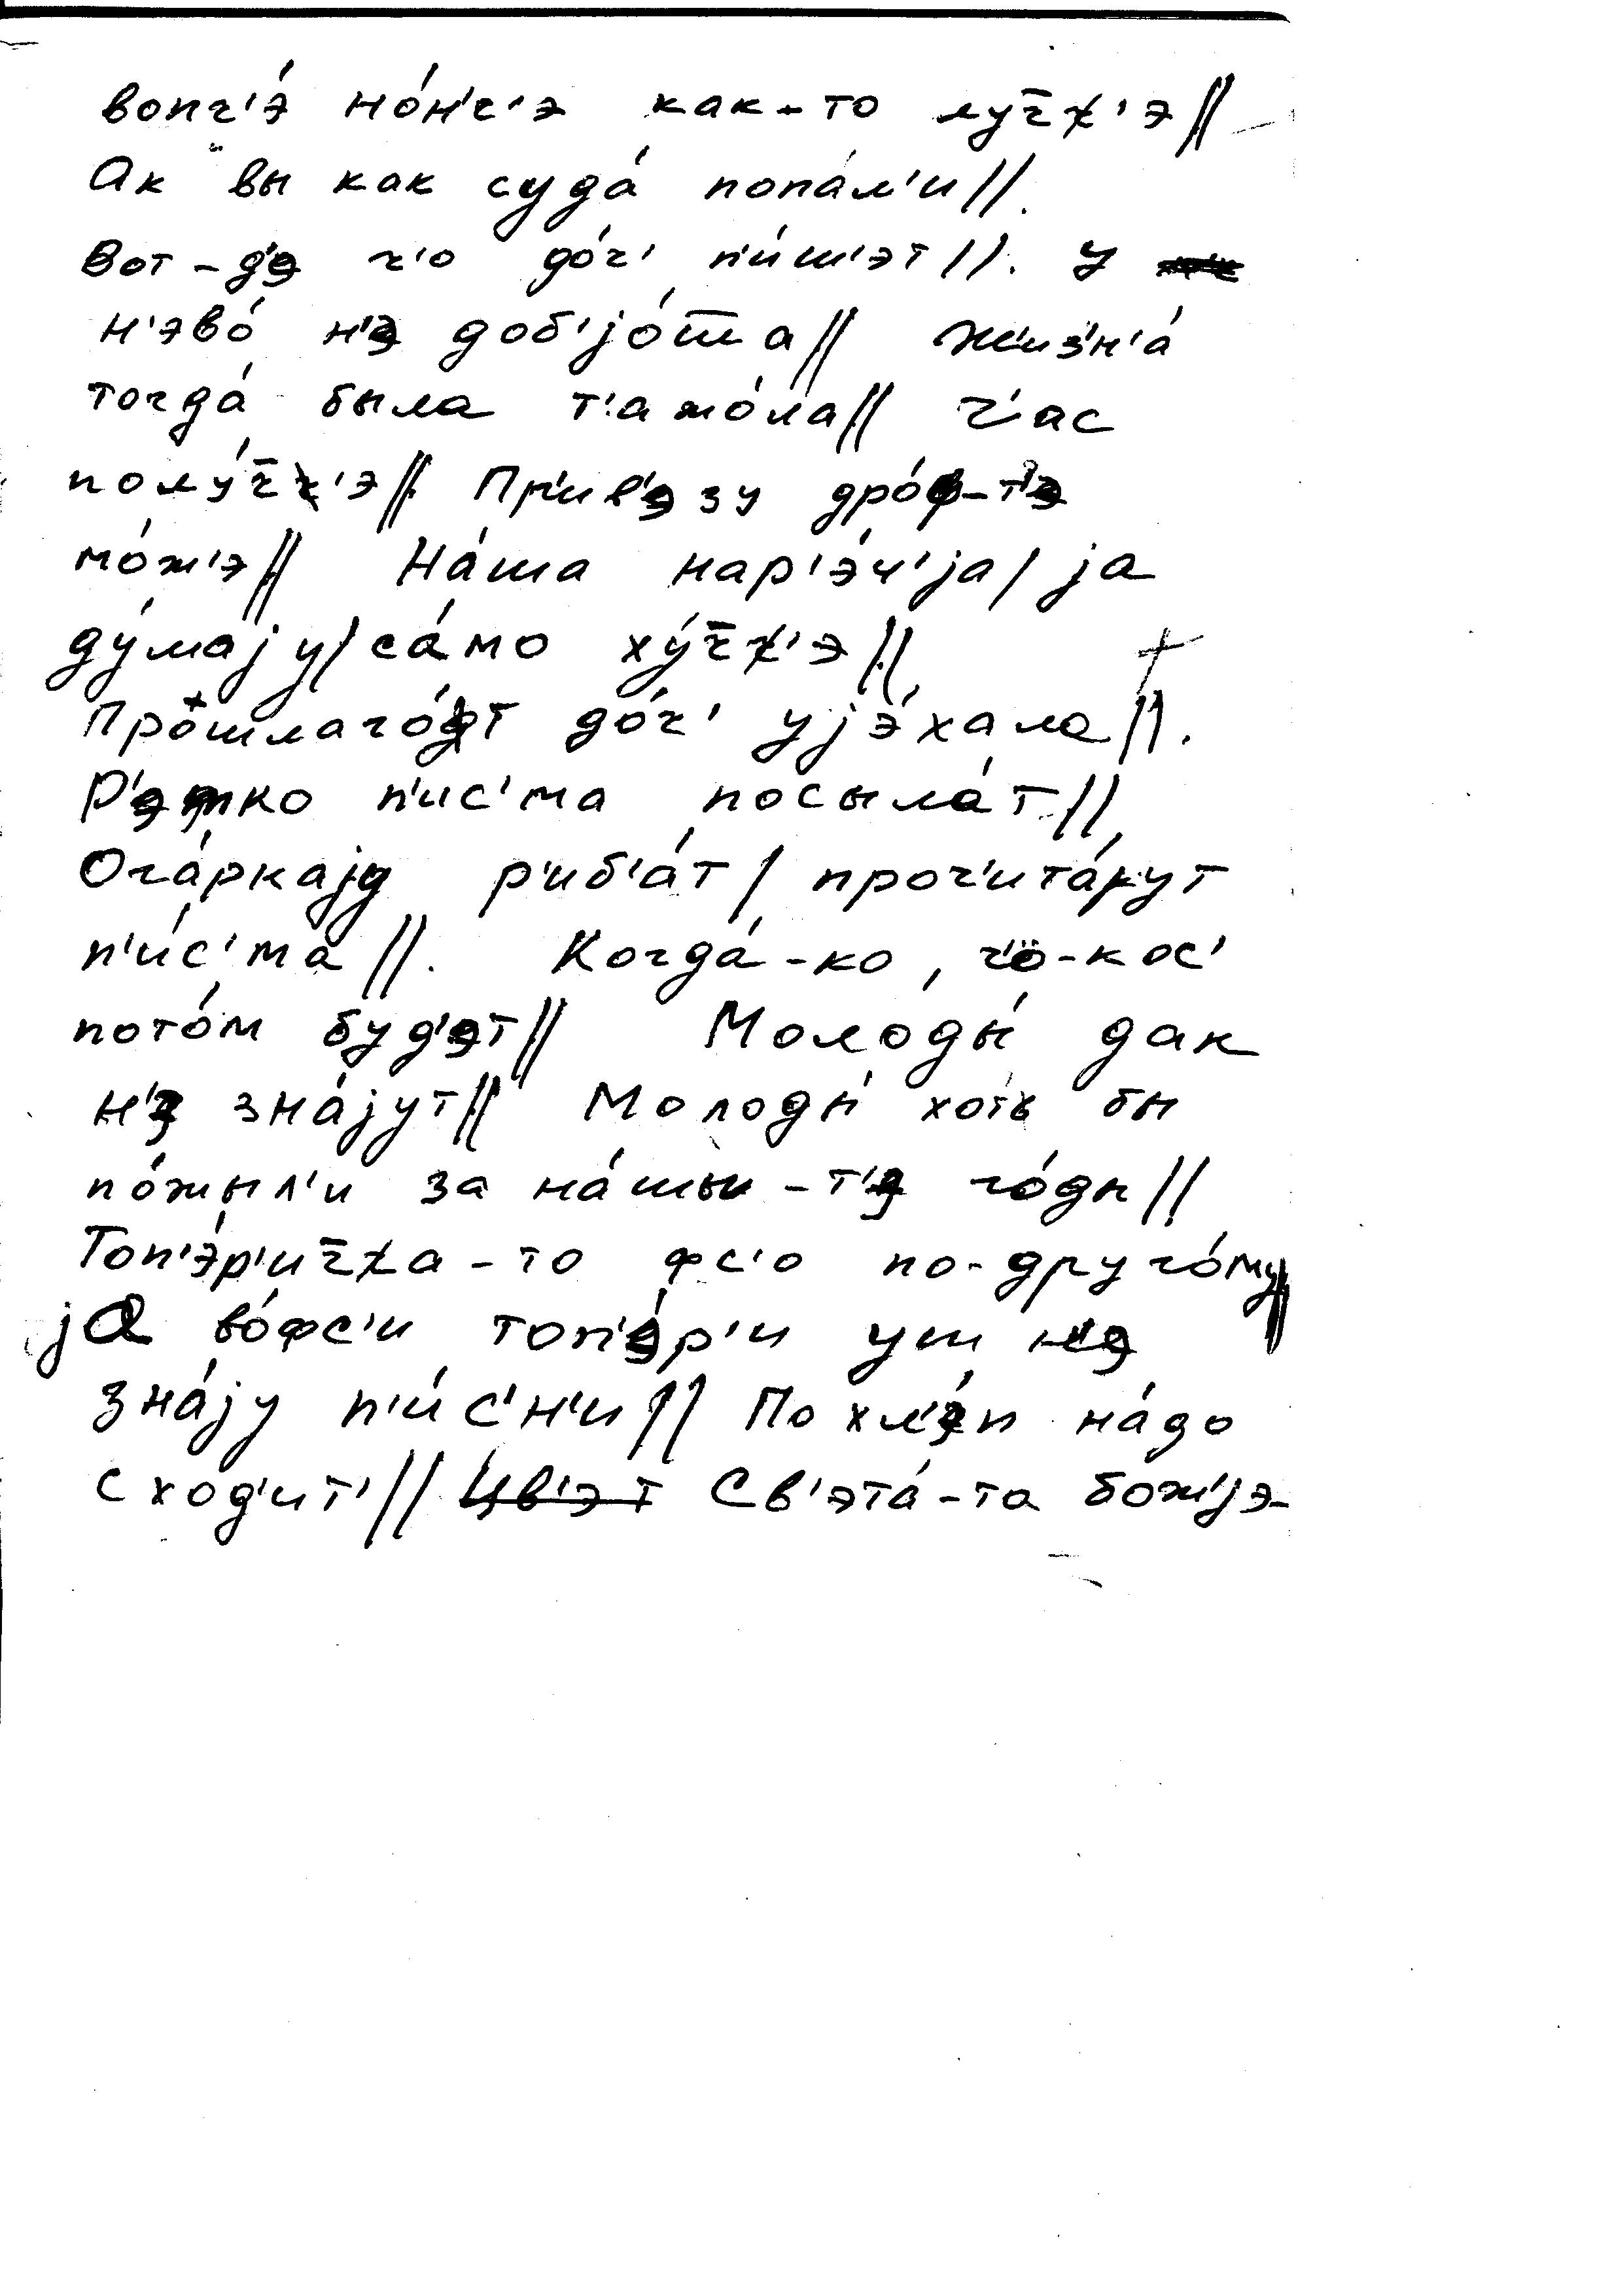 вопч'э́ но́н'ч'э как-то лу́ч̅х'э//
Ак вы как суда́ попа́л'и//.
Вот-д'э ч'о до́ч' п'и́ш'эт//. У
н'эво́ н'э доб'jо́т̅ша// Ж'из'н'а́
тогда́ была т'ажо́ла// Ч'ас
полу́ч̅х'э// Пр'ив'эзу дро́ф-т'э
мо́ж'э// На́ша нар'э́ч'jа/ jа
ду́маjу/ са́мо ху́ч̅х'э//
Прошлаго́т до́ч' уjэ́хала//.
Р'э́тко п'ис'ма посыла́т//
Ога́ркаjу р'иб'а́т/ проч'ита́jут
п'и́с'ма//. Когда́-ко, ч'о-кос'
пото́м буд'эт// Молоды́ дак
н'э зна́jут// Молоды́ хоть бы
по́жыл'и за на́шы-т'э го́ды//
Топ'э́р'ич̅ха-то фс'о по-друго́му//
jа во́фс'и топ'э́р'и уш н'э
зна́jу п'и́с'н'и// По хл'э́п на́до
сход'ит'// Цв'эт Св'эта́-та бож'jэ-